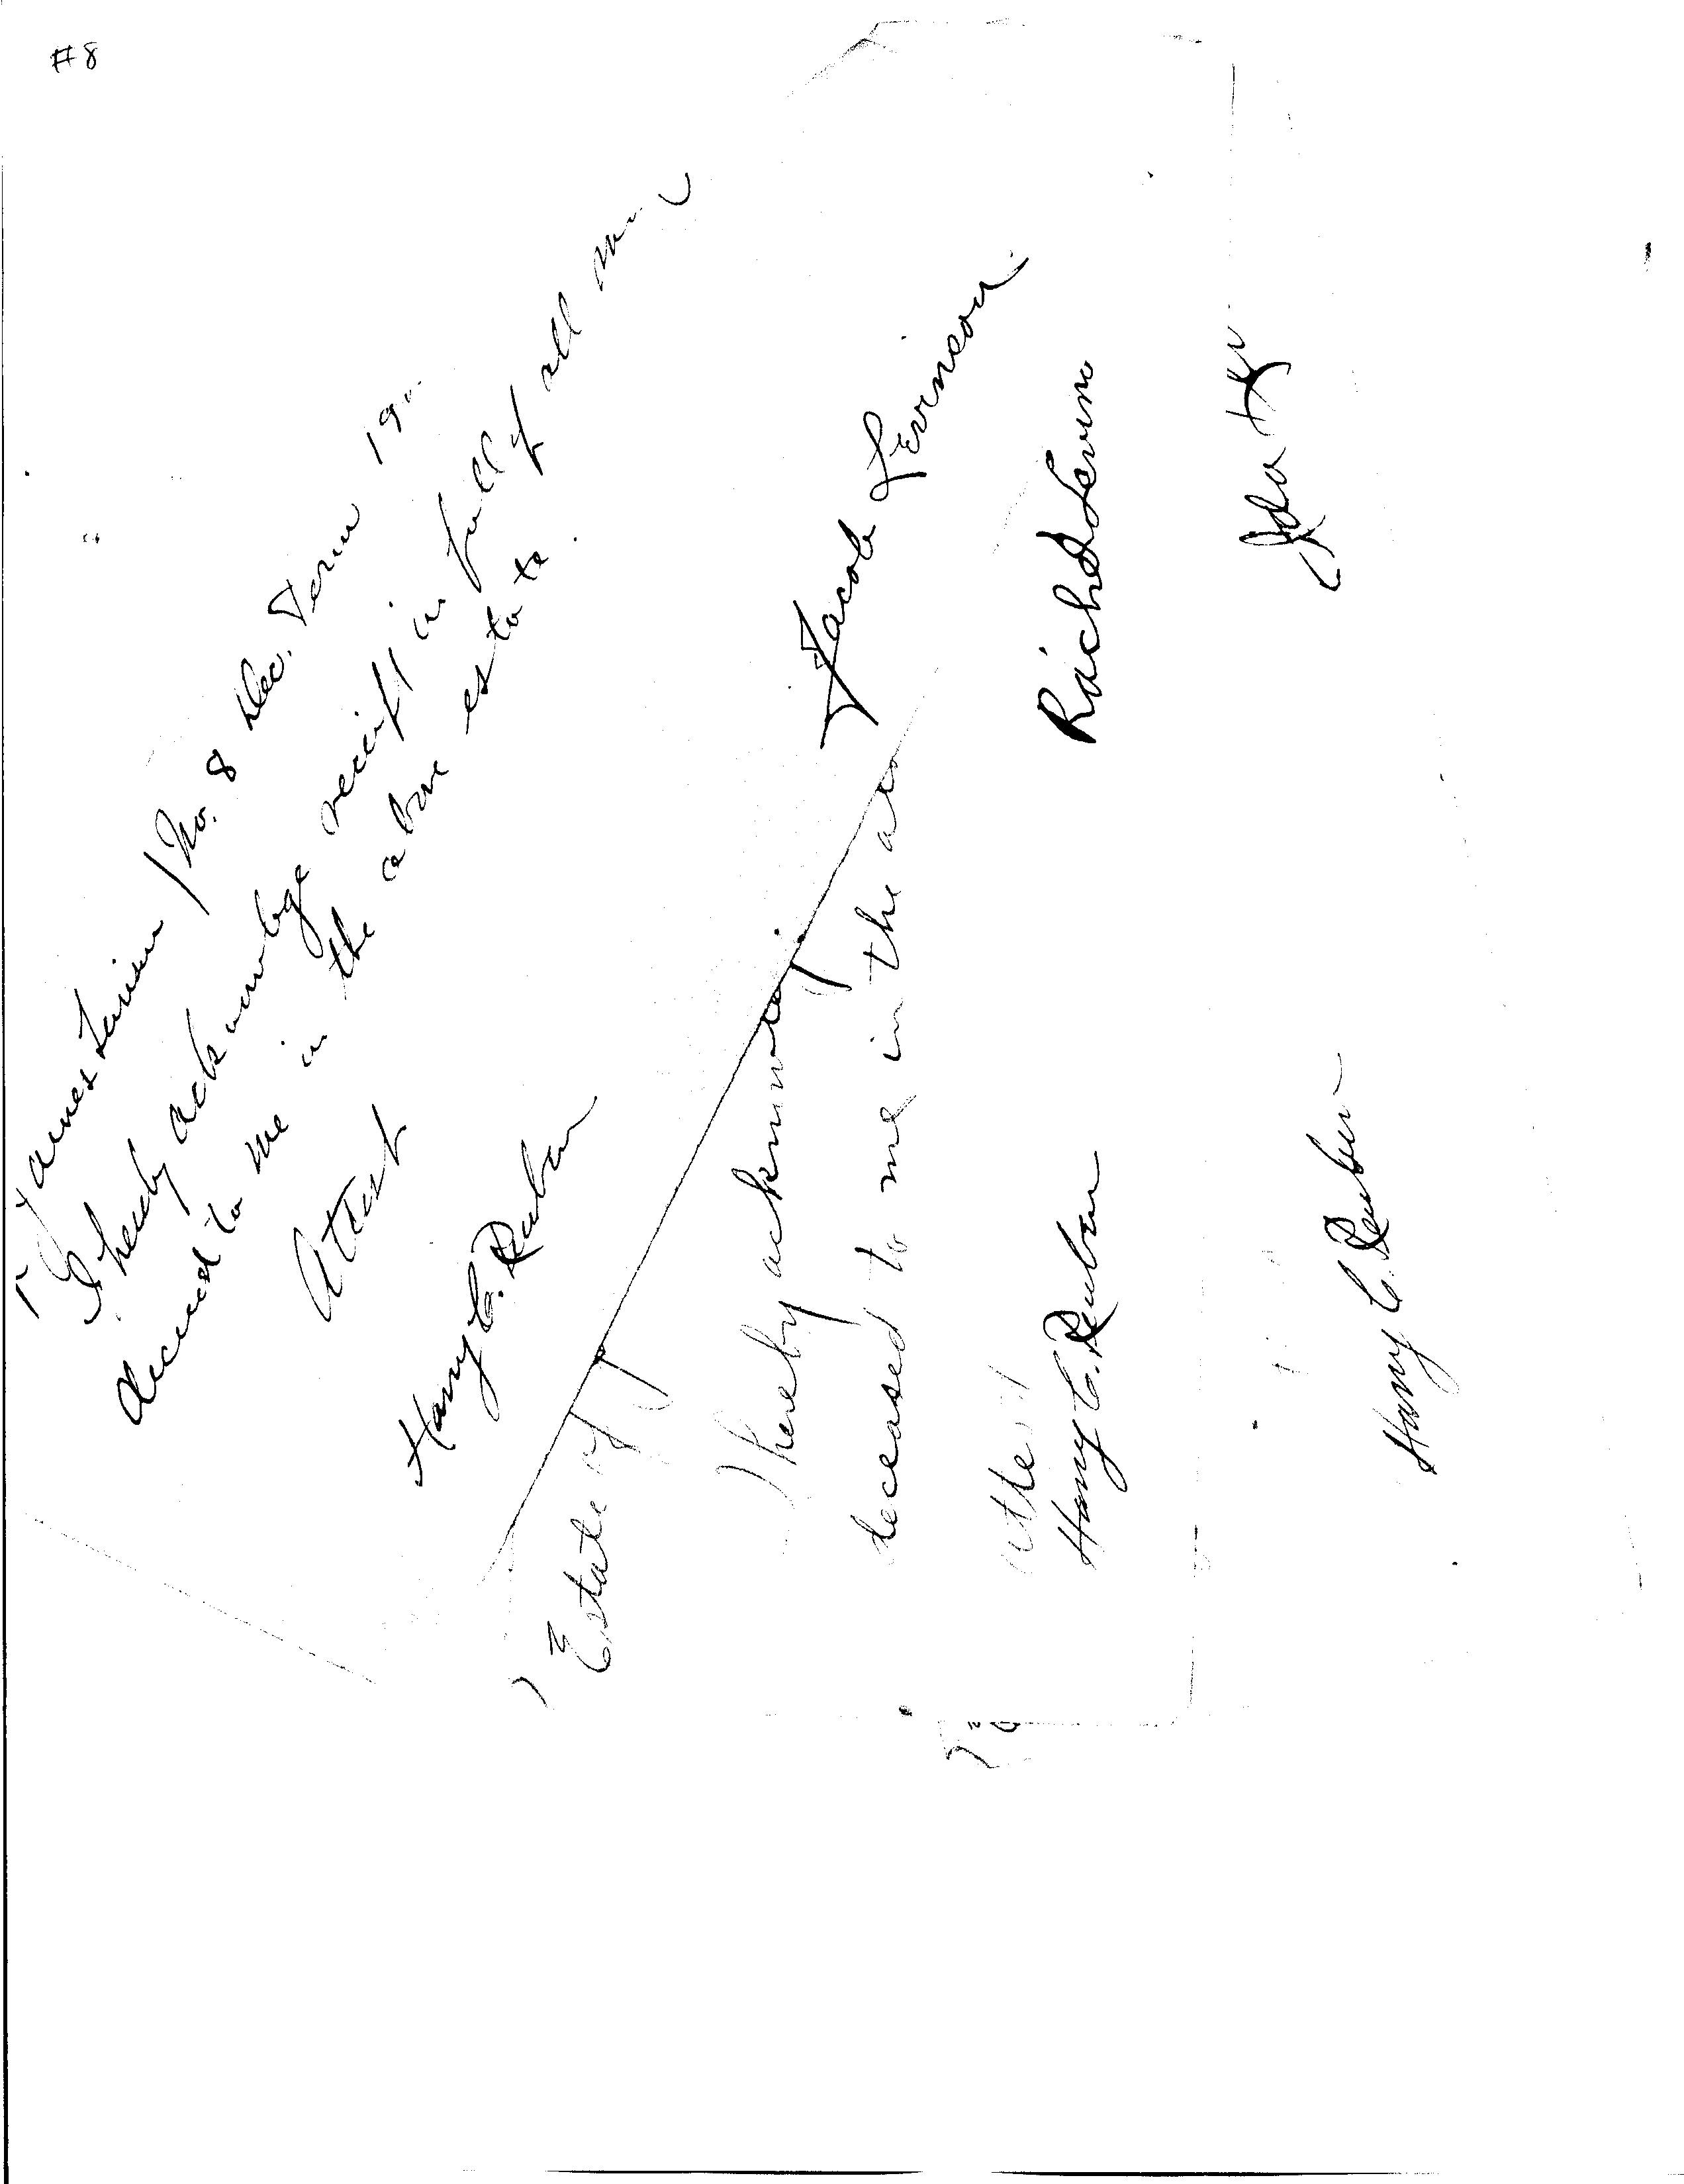 #8
James Levison / No. 8 Dec. Term 19
I hereby acknowledge receipt in full of all
decreed to me in the above estate.
Attest
Harry C. Reuben
Jacob Levinson
Estate of J
I hereby acknow
deceased to me in the
attest
Harry C. Reuben
Rachel Levin
Ida
Harry C. Reuben